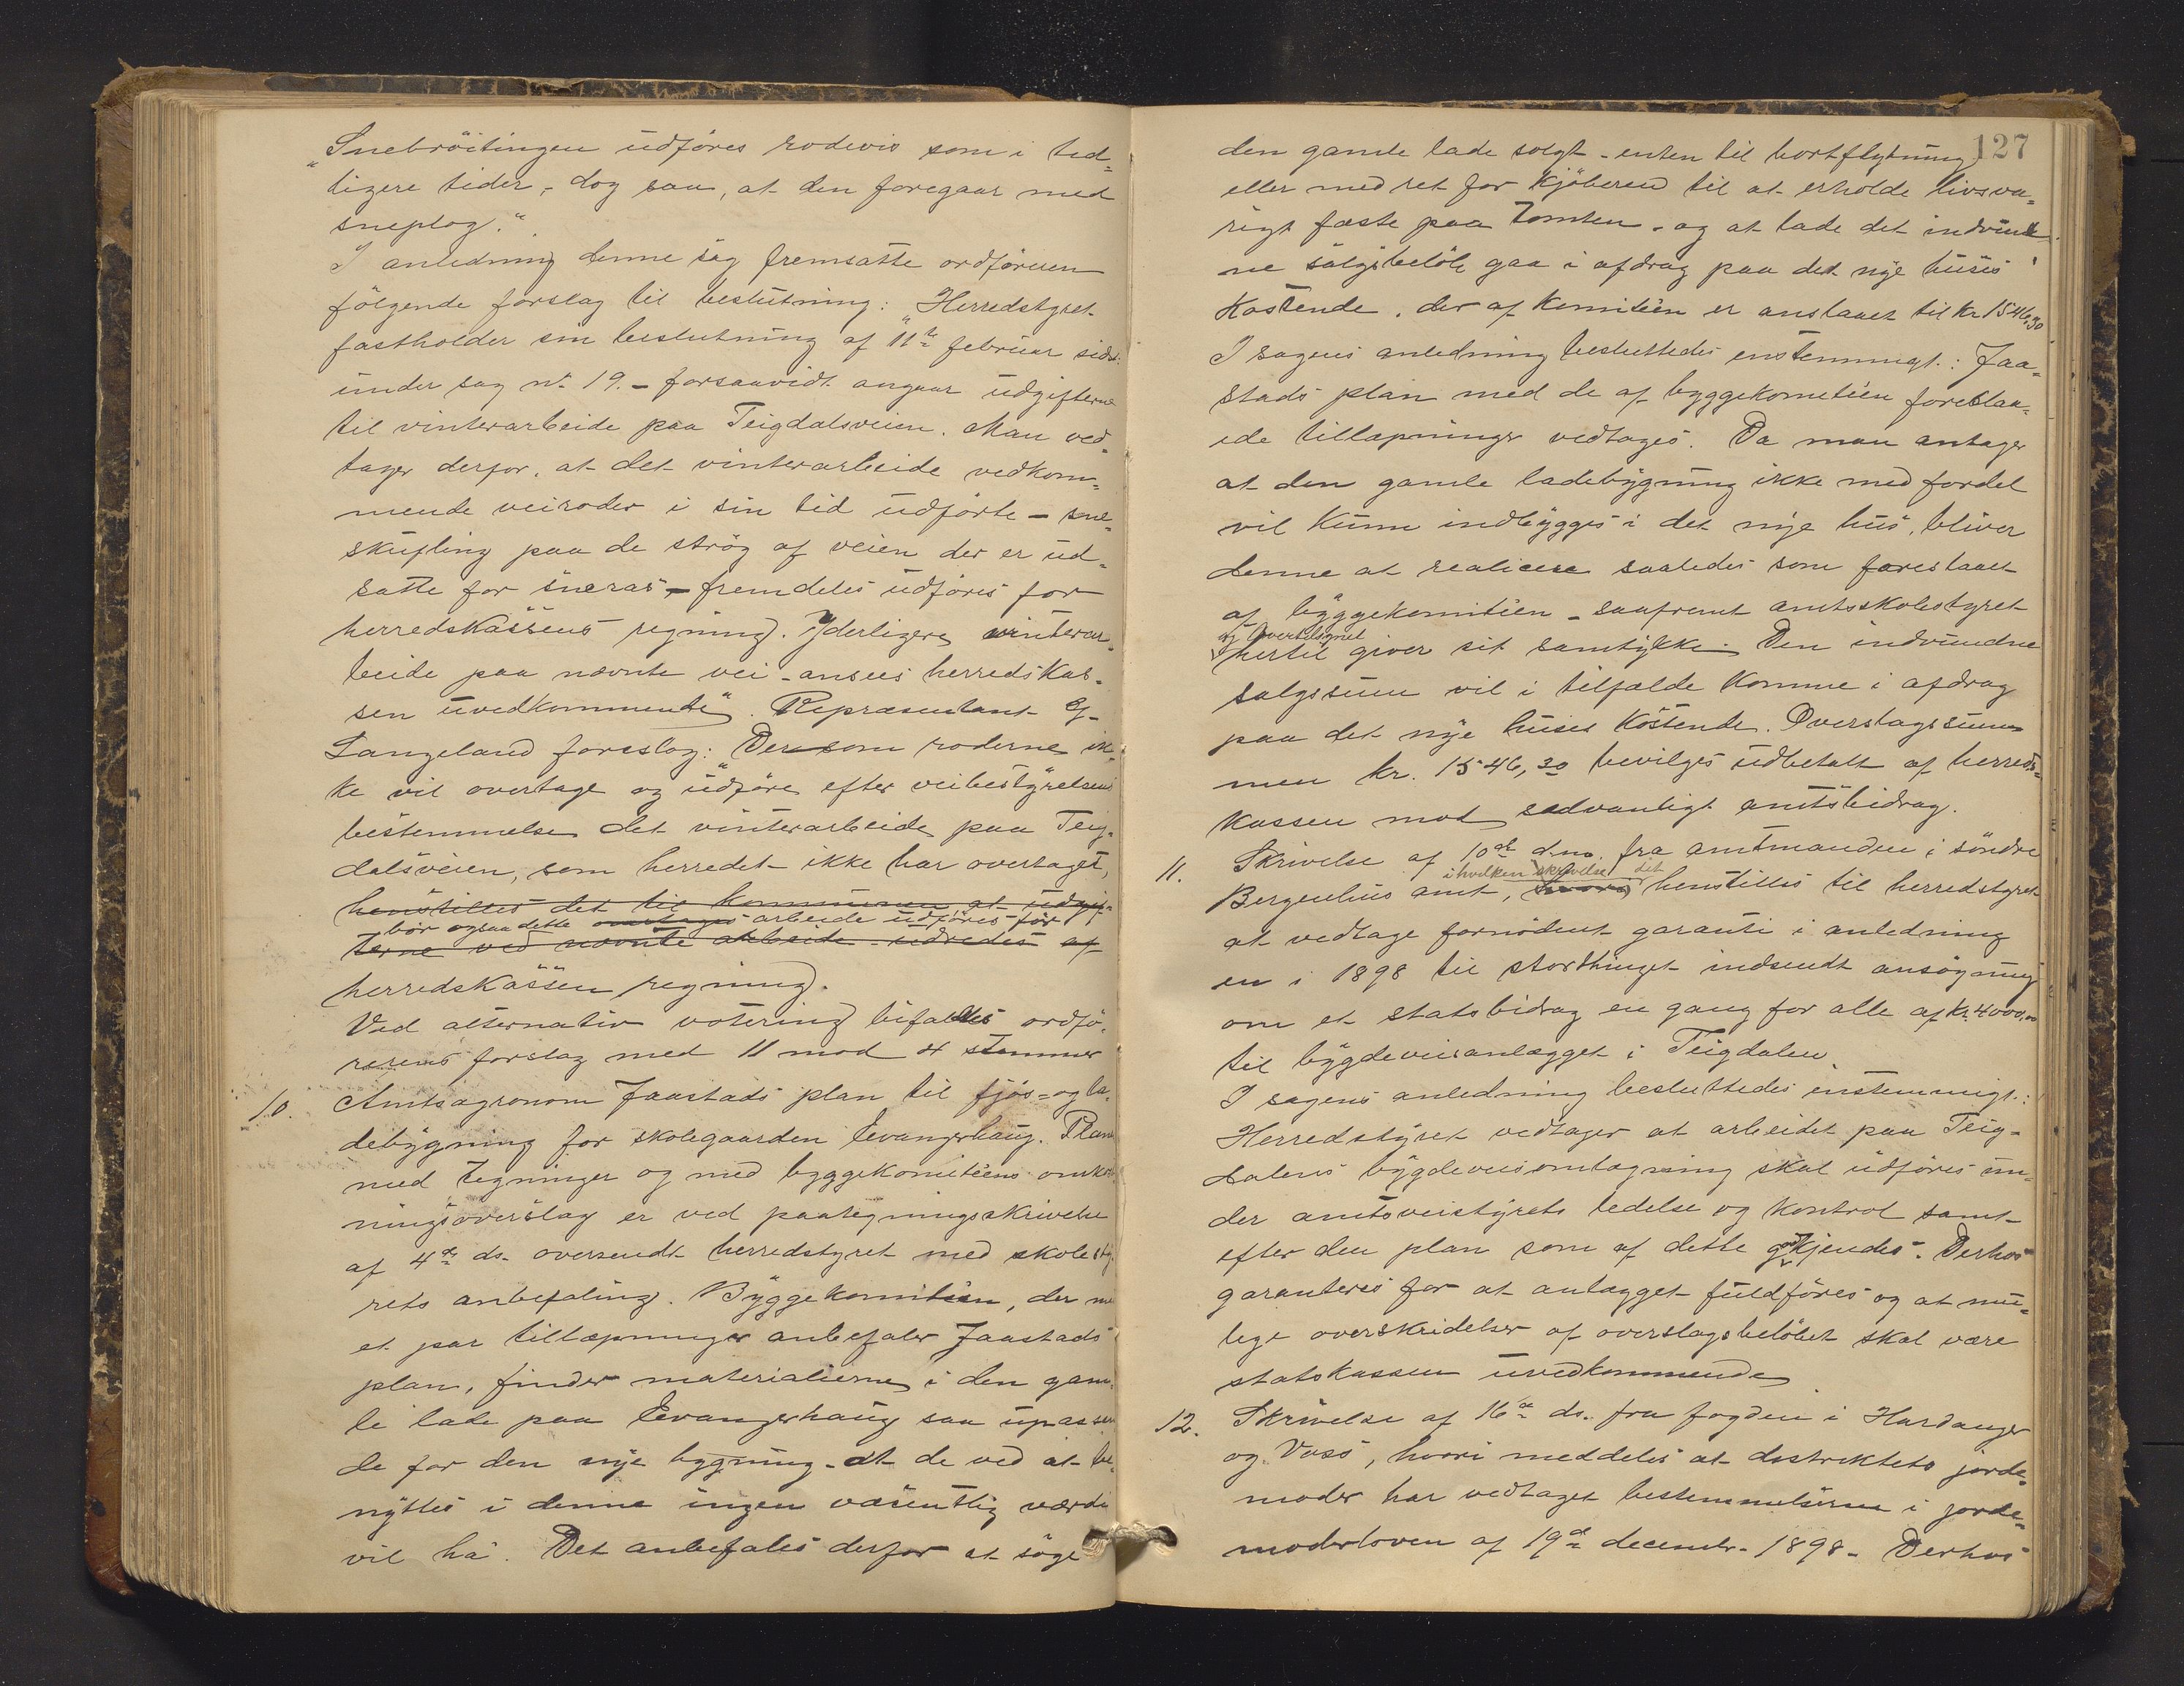 „Snebröitingen udföres rodevis som i tid=
ligere tider, - dog saa, at den foregaar med
sneplog.“
I anledning denne sag fremsatte ordföreren
fölgende forslag til beslutning: „Herredstyret
fastholder sin beslutning af 11te februar sidst.
under sag nr. 19. - forsaavidt angaar udgifterne
til vinterarbeide paa Teigdalsveien. Man ved=
tager derfor, at det vinterarbeide vedkom=
mende veiroder i sin tid udförte - sne=
skufling paa de strög af veien der er ud=
satte for sneras, - fremdeles udföres for
herredskassens regning. Yderligere vinterar=
beide paa nævnte vei - ansees herredskas=
sen uvedkommende“. Repræsentant
Langeland foreslog: Dersom roderne ik=
ke vil overtage og udföre efter veibestyrelsens
bestemmelse det vinterarbeide paa Teig=
dalsveien, som herredet ikke har overtaget,
henstilles det til kommunen at udgif=
bör ogsaa dette overtages arbeide udföres för
terne ved nævnte arbeide - udredes af
herredskassen regning.
Ved alternativ votering bifaldtes ordfö=
rerens forslag med 11 mod 4 stemmer
10. Amtsagronom Jaastads plan til fjös- og la=
debygning for skolegaarden Evangerhaug. Plan
med tegninger og med byggekomitéens omkost
ningsoverslag er ved paategningsskrivelse
af 4de ds. oversendt herredstyret med skolesty
rets anbefaling. Byggekomitéen, der med
et par tillæpninger anbefaler Jaastads
plan, finder materialierne i den gam=
le lade paa Evangerhaug saa upassen
de for den nye bygning - at de ved at be=
nyttes i denne ingen væsentlig værdi
vil ha. Det anbefales derfor at söge
127
den gamle lade solgt - enten til bortflytning
eller med ret for kjöberen til at erholde livsva=
rigt fæste paa tomten - og at lade det indvund
ne salgsbelöb gaa i afdrag paa det nye huses
kostende, der af komitéen er anslaaet til kr 1546,30
I sagens anledning besluttedes enstemmigt: Jaa=
stads plan med de af byggekomitéen foreslaa=
ede tillæpninger vedtages. Da man antager
at den gamle ladebygning ikke med fordel
vil kunne indbygges i det nye hus, bliver
denne at realisere saaledes som foreslaaet
af byggekomitéen - saafremt amtsskolestyret
og
hertil giver sit samtykke. Den indvundne
salgssum vil i tilfælde komme i afdrag
paa det nye huses kostende. Overslagssum=
men kr. 1546,30 bevilges udbetalt af herreds=
kassen mod sedvanligt amtsbidrag.
11. Skrivelse af 10de d.m. fra amtmanden i söndre
i hvilken skrivelse det
Bergenhus amt, hvori henstilles til herredstyret
at vedtage fornödent garanti i anledning
en i 1898 til storthinget indsendt ansögning
om et statsbidrag en gang for alle af kr. 4000,00
til bygdeveisanlægget i Teigdalen.
I sagens anledning besluttedes enstemmigt:
Herredstyret vedtager at arbeidet paa Teig=
dalens bygdeveisomlægning skal udföres un=
der amtsveistyrets ledelse og kontrol samt
efter den plan som af dette godkjendes. Derhos
garanteres for at anlægget fuldföres og at mu=
lige overskridelser af overslagsbelöbet skal være
statskassen uvedkommende
12. Skrivelse af 16de ds. fra fogden i Hardanger
og Voss, hvori meddeles at distriktets jorde=
moder har vedtaget bestemmelserne i jorde=
moderloven af 19de decembr. 1898. Derhos